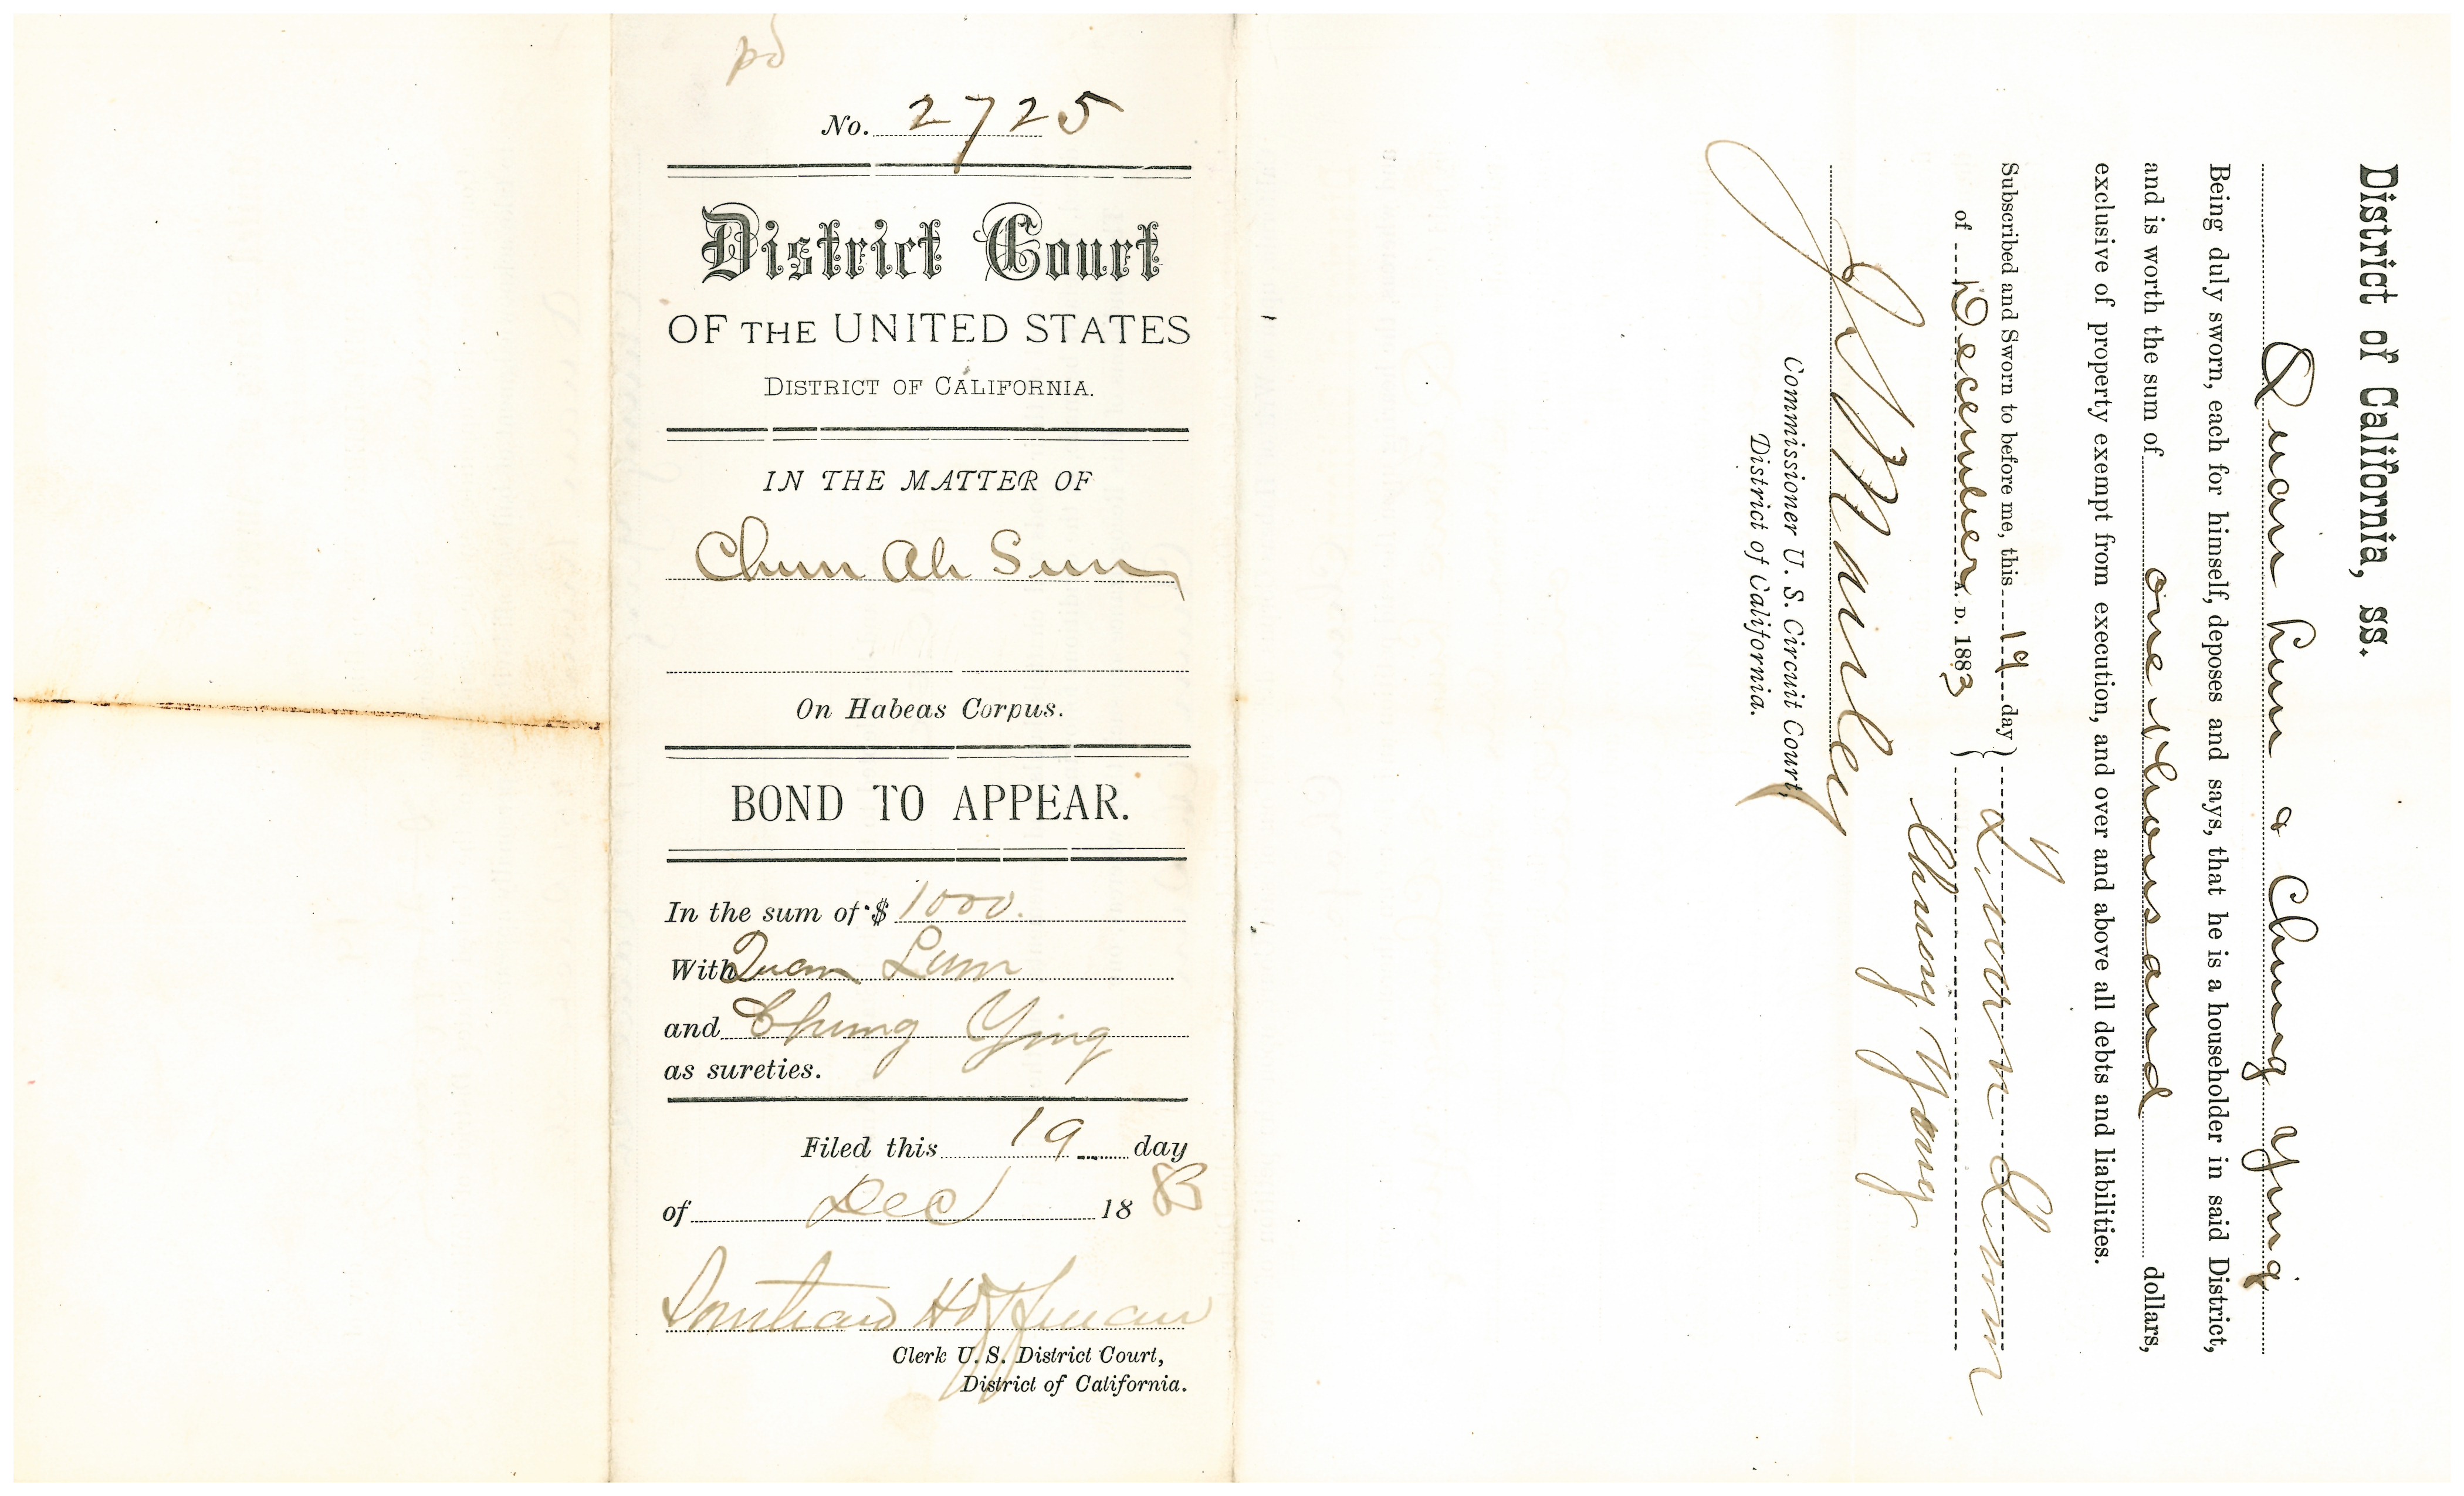 pd
No. 2725
District Court
OF THE UNITED STATES
DISTRICT OF CALIFORNIA.
IN THE MATTER OF
Chun Ah Sun
On Habeas Corpus.
BOND TO APPEAR.
In the sum of $ 1000.
With Quan Lum
and Chung Ying
as sureties.
Filed this 19 day
of Dec 1883
Hoffman
Clerk U. S. District Court,
District of California.
District of California, ss.
Quan Lum & Chung Ying
Being duly sworn, each for himself, deposes and says, that he is a householder in said District,
and is worth the sum of one thousand dollars,
exclusive of property exempt from execution, and over and above all debts and liabilities.
Subscribed and Sworn to before me, this 19 day
of December A. D. 1883
Lum
Chung Yong
Manley
Commissioner U. S. Circuit Court,
District of California.